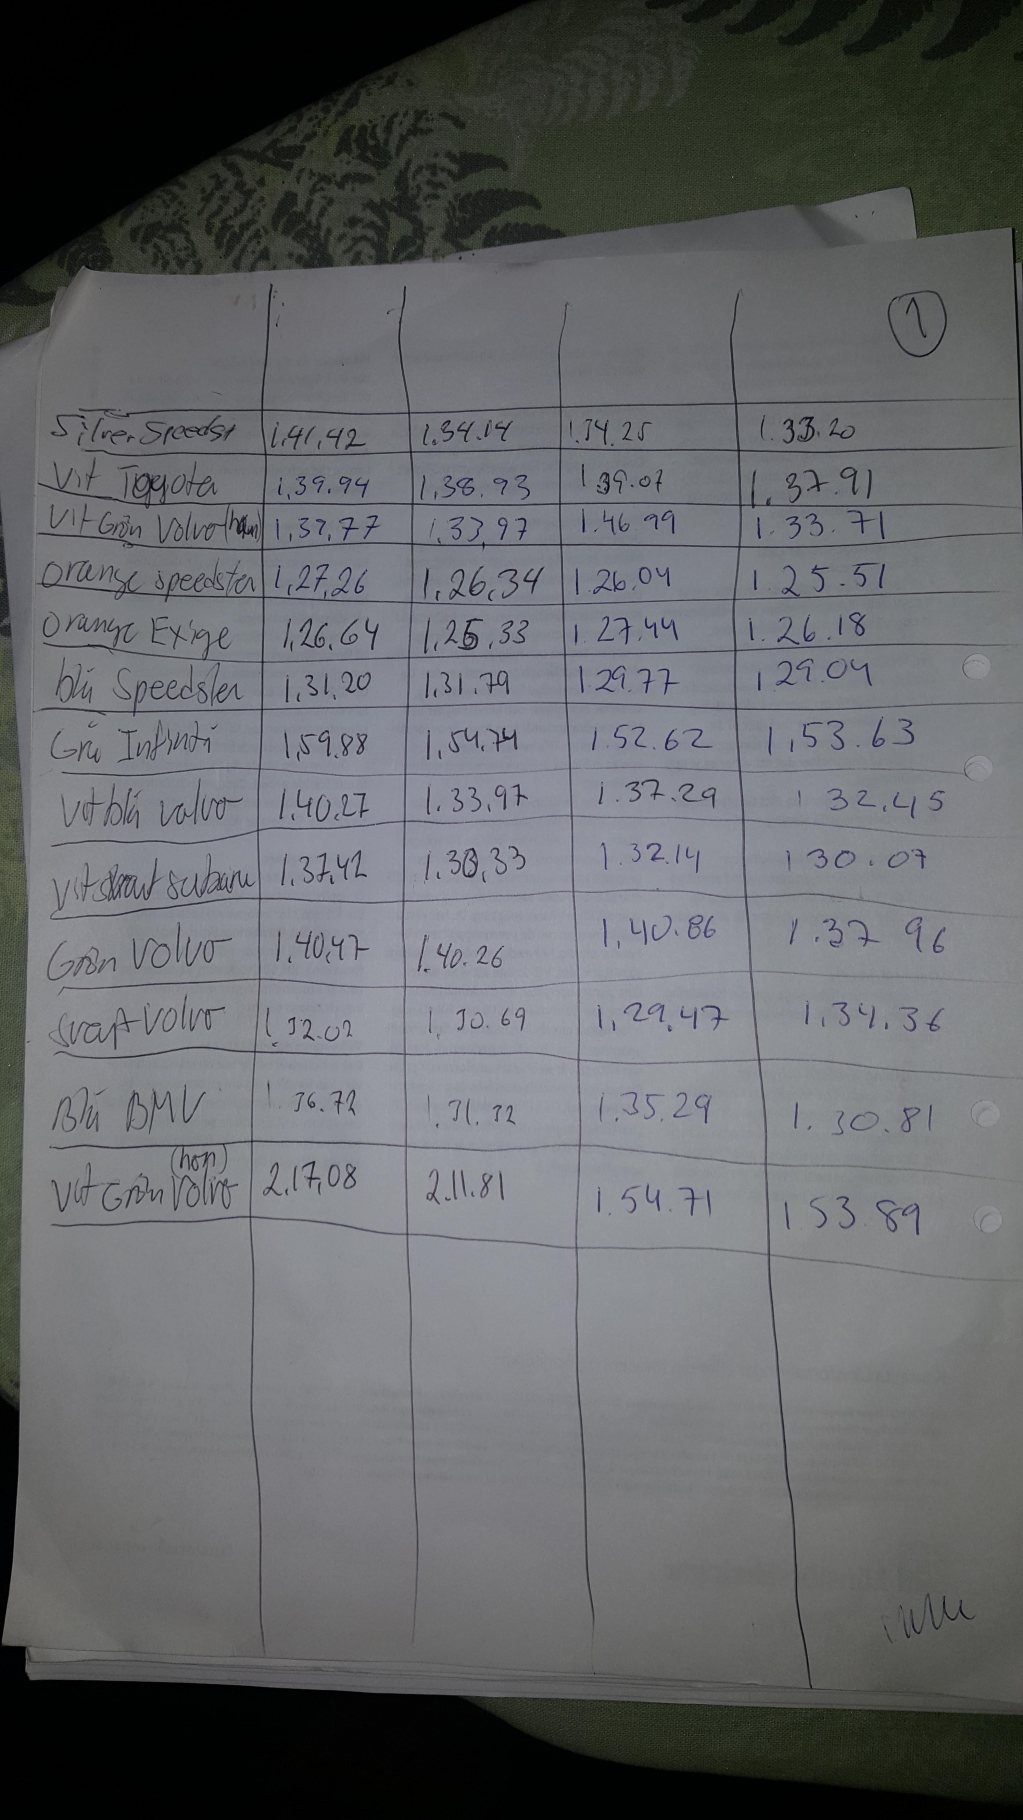 1
Silver Speedst 1,41,42 1.34.14 1.34.25 1.33.20
Vit Toyota 1,39.94 1,38.93 1 39.07 1.37.91
Vit Grön Volvo (han) 1,37,77 1.33,97 1.46.99 1.33.71
Orange speedster 1,27,26 1,26,34 1.26.04 1.25.51
Orange Exige 1,26,64 1,26,33 1.27.44 1.26.18
blå Speedster 1,31,20 1.31.79 1 29.77 1 29.04
Grå Infiniti 1,59.88 1,54.74 1.52.62 1,53.63
Vit blå valvo 1.40.27 1.33.97 1.37.29 1 32.45
Vit svart subaru 1.37,42 1.30,33 1.32.14 1 30.07
Grön Volvo 1.40,47 1.40.26 1,40.86 1.37 96
svart Volvo 1.32.02 1.30.69 1,29,47 1.34.36
Blå BMV 1.36.72 1.31.32 1.35.29 1.30.81
(hon)
Vit Grön Volvo 2,17,08 2.11.81 1.54.71 1 53.89